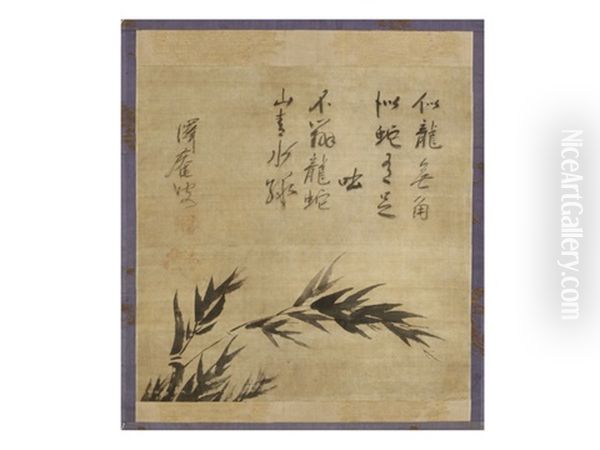 似龍無角
似蛇有足
咄
不辨龍蛇
山青水緑
澤庵叟
NiceArtGallery.com